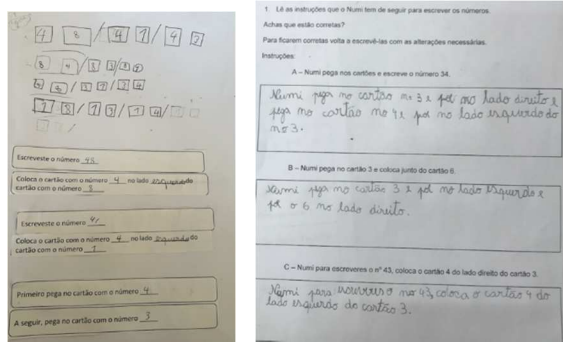 4 8 / 4 1 / 4 2
Escreveste o número 48
Coloca o cartão com o número 4 no lado esquerdo do
cartão com o número 8
Escreveste o número 41
Coloca o cartão com o número 4 no lado esquerdo do
cartão com o número 1
Primeiro pega no cartão com o número 4
A seguir, pega no cartão com o número 3
1. Lê as instruções que o Numi tem de seguir para escrever os números.
Achas que estão corretas?
Para ficarem corretas volta a escrevê-las com as alterações necessárias.
Instruções:
A – Numi pega nos cartões e escreve o número 34.
Numi pega no cartão no 3 e pol no lado direito e
pega no cartão no 4 e pol no lado esquerdo do
no 3.
B – Numi pega no cartão 3 e coloca junto do cartão 6.
Numi pega no cartão 3 e pol no lado esquerdo e
pol o 6 no lado direito.
C – Numi para escreveres o nº 43, coloca o cartão 4 do lado direito do cartão 3.
Numi para no 43, coloca o cartão 4 do
lado esquerdo do cartão 3.